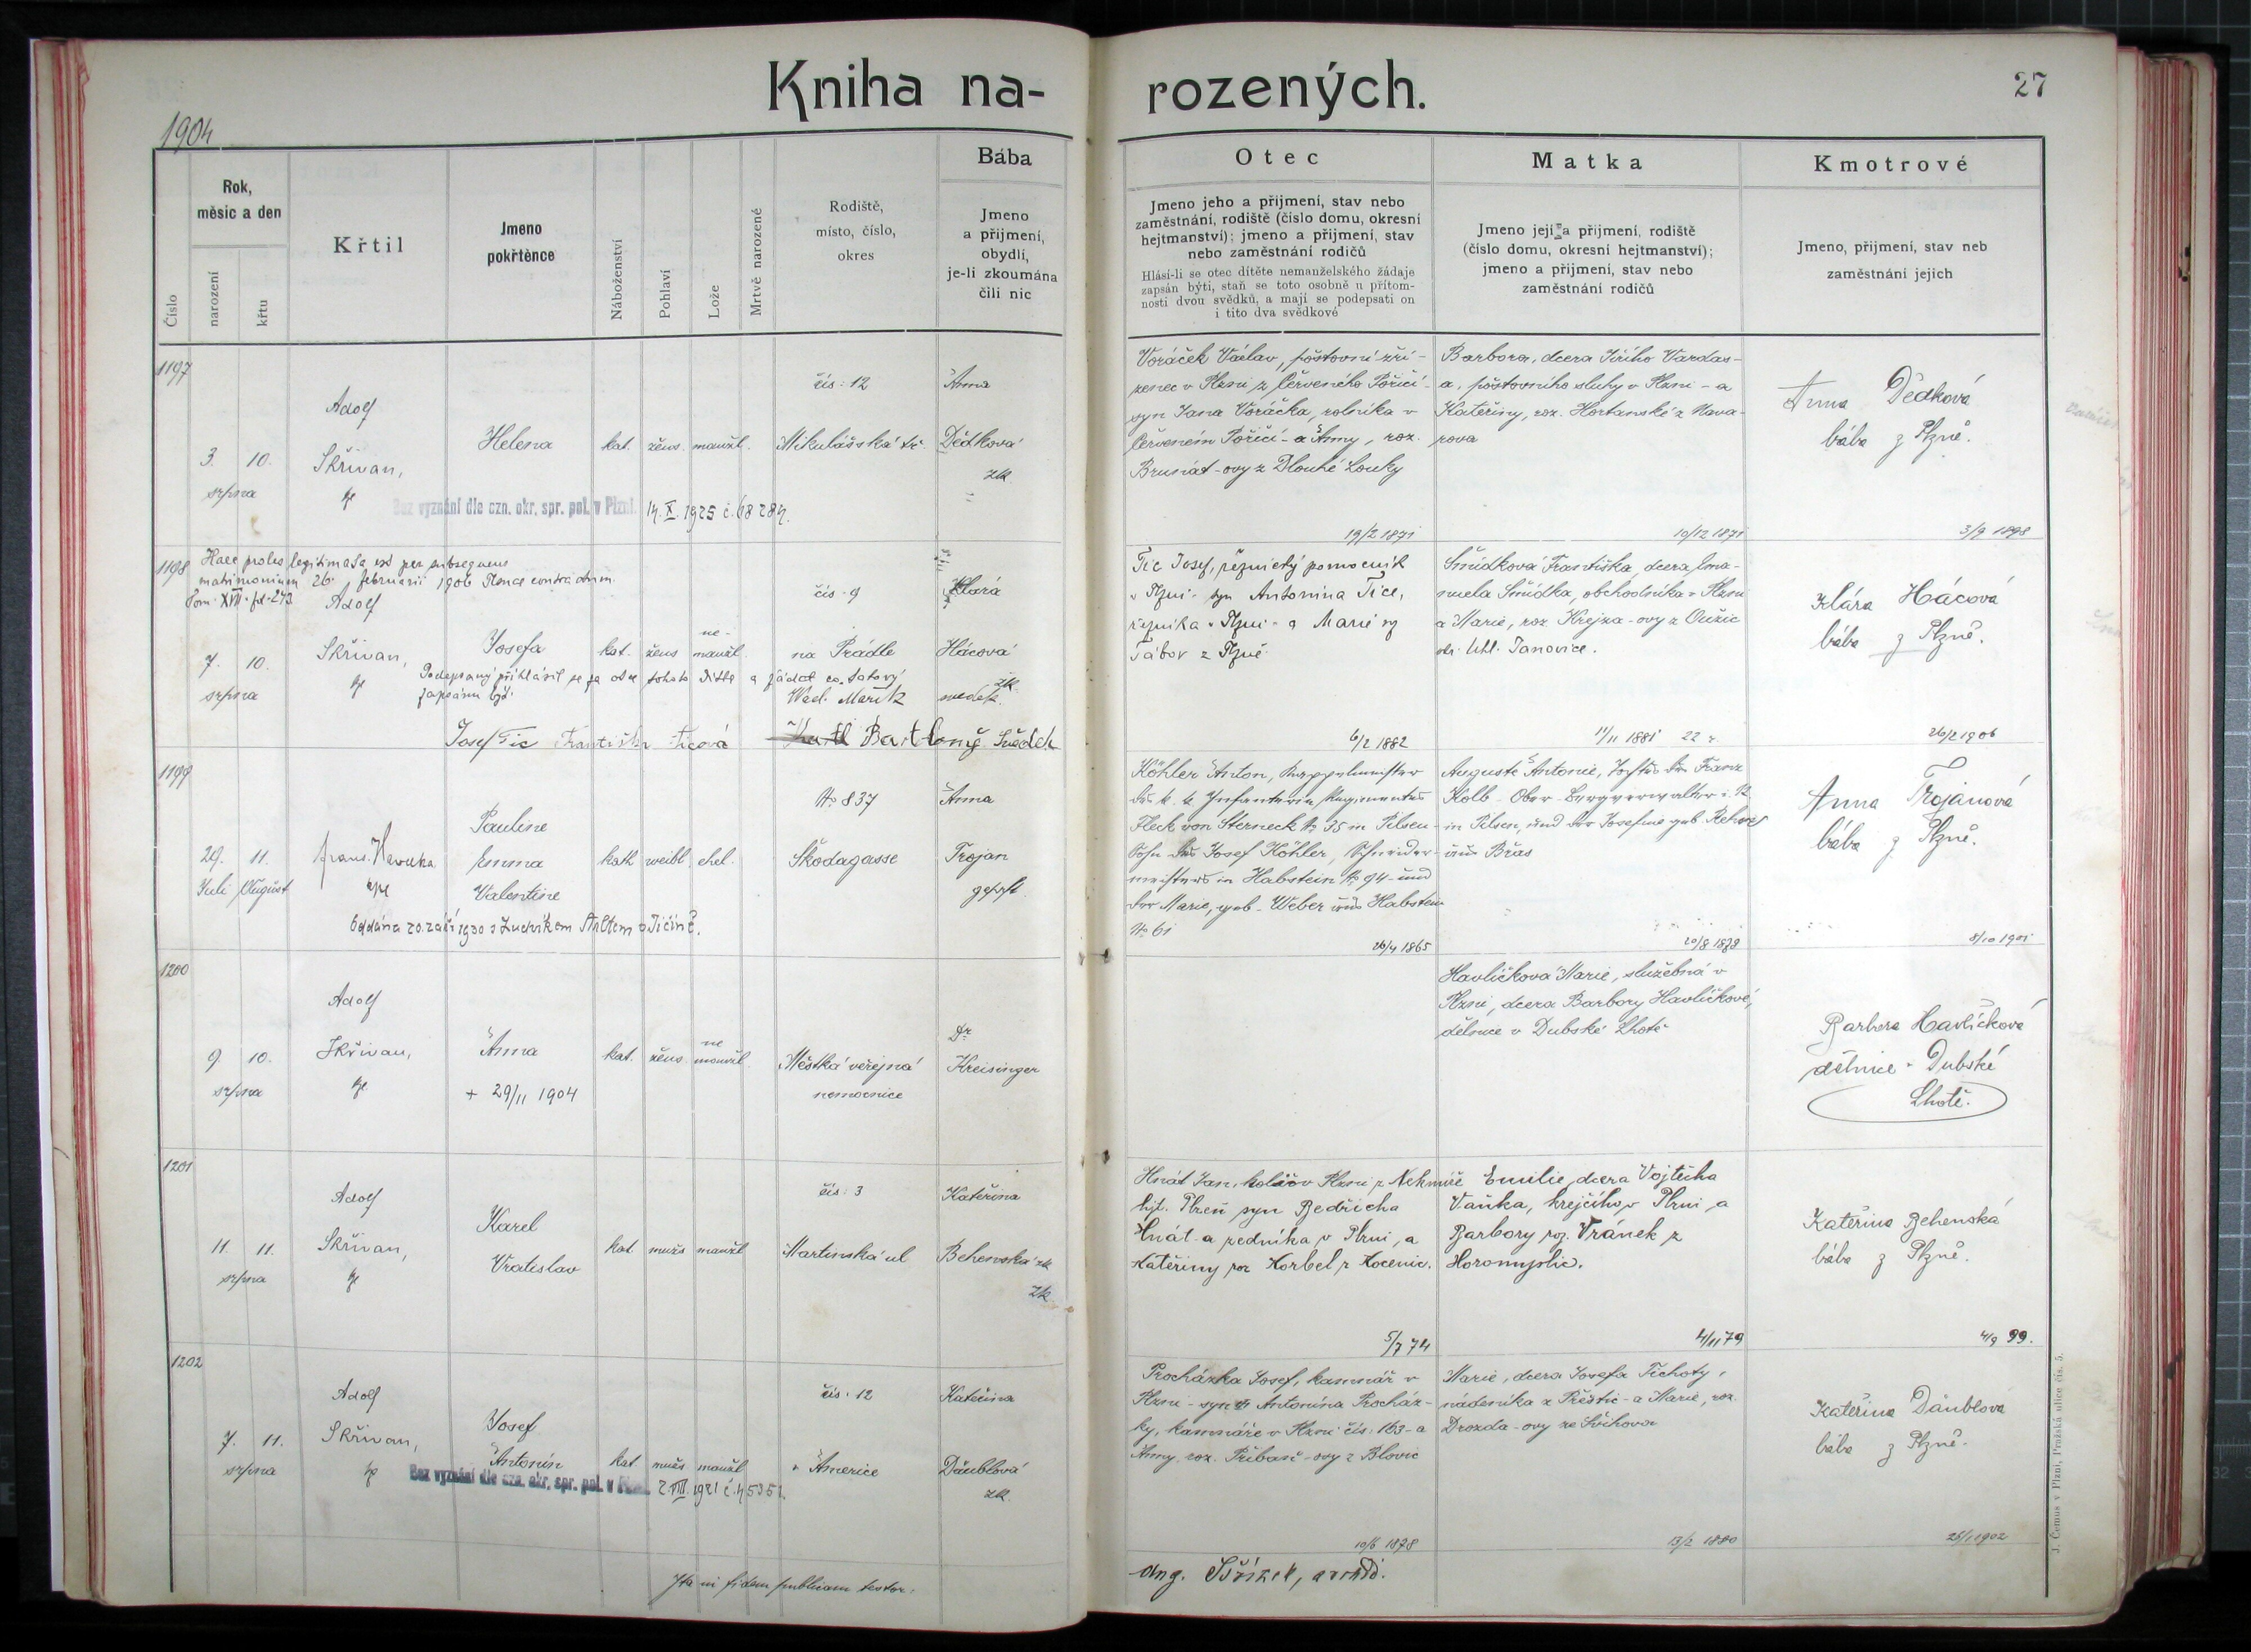 Kniha na-
rozených.
27
1904
Číslo
Rok,
měsíc a den
narození
křtu
Křtil
Jmeno
pokřtěnce
Náboženství
Pohlaví
Lože
Mrtvě narozené
Rodiště,
místo, číslo,
okres
Bába
Jmeno
a příjmení,
obydlí,
je-li zkoumána
čili nic
Otec
Jmeno jeho a příjmení, stav nebo
zaměstnání, rodiště (číslo domu, okresní
hejtmanství); jmeno a příjmení, stav
nebo zaměstnání rodičů
Hlásí-li se otec dítěte nemanželského žádaje
zapsán býti, staň se toto osobně u přítom-
nosti dvou svědků, a mají se podepsati on
i tito dva svědkové
Matka
Jmeno její a příjmení, rodiště
(číslo domu, okresní hejtmanství);
jmeno a příjmení, stav nebo
zaměstnání rodičů
Kmotrové
Jmeno, příjmení, stav neb
zaměstnání jejich
1197
3. 10.
srpna
Adolf
Skřivan,
Helena
kat. žens. manžl.
čís: 12
Mikulášská tř.
Anna
Dědková
zk.
Bez vyznání dle ozn. okr. spr. pol. v Plzni 14. X. 1925 č. 68284.
Voráček Václav, poštovní zří-
zenec v Plzni z Červeného Poříčí -
syn Jana Voráčka, rolníka v
Červeném Poříčí - a Anny, roz.
Brunát-ovy z Dlouhé Louky
19/2 1871
Barbora, dcera Jiřího Vardas-
a, poštovního sluhy v Plzni - a
Kateřiny, roz. Hortanské z Nava-
rova
10/12 1871
Anna Dědková
bába z Plzně.
3/9 1898
1198
Haec proles legitimata est per subsequens
matrimonium 26. februarii 1906 Plsnae contractum.
Tom. XVII. fol. 273
7. 10.
srpna
Adolf
Skřivan,
Josefa
kat. žens ne-
manžl.
čís. 9
na Prádle
Klára
Hácová
zk.
Podepsaný přihlásil se za otce tohoto dítěte a žádal co takový
zapsánu býti.
Josef Tic Františka Ticová
svědek.
Bartloměj Svědek
Tic Josef, řeznický pomocník
v Plzni - syn Antonína Tice,
řezníka v Plzni - a Marie roz
Tábor z Plzně.
6/2 1882
Šmídková Františka, dcera Ema-
nuela Šmídka, obchodníka v Plzni
a Marie, roz. Krejza-ovy z Oužic
okr. Uhl. Janovice.
11/11 1881 22 r.
Klára Hácová
bába z Plzně.
26/2 1906
1199
29. 11.
Juli August
Franz Havelka
Pauline
Emma
Valentine
kath weibl. ehel.
No 837
Škodagasse
Anna
Trojan
geprft.
Oddána 20. září 1930 s Ludvíkem
v Jičíně.
Köhler Anton, Kappelmeister
des k. k. Infanterie Regimentes
Fleck von Sterneck No 35 in Pilsen -
Sohn des Josef Köhler, Schneider-
meisters in Habstein No 94 - und
der Marie, geb. Weber aus Habstein
No 61
26/4 1865
Auguste Antonie, Tochter des Franz
Kolb - Ober-Bergverwalter i. R.
in Pilsen, und der Josefine geb. Rehorz
aus Břas
20/8 1879
Anna Trojanová
bába z Plzně.
8/10 1901
1200
9. 10.
srpna
Adolf
Skřivan,
Anna
+ 29/11 1904
kat. žens. ne
manžl.
Městká veřejná
nemocnice
Dr
Kreisinger
Havlíčková Marie, služebná v
Plzni, dcera Barbory Havlíčkové,
dělnice v Dubské Lhotě
Barbora Havlíčková
dělnice v Dubské
Lhotě.
1201
11. 11.
srpna
Adolf
Skřivan,
Karel
Vratislav
kat. mužs manžl
čís: 3
Martinská ul
Kateřina
Behenská zk
zk
Hnát Jan, kolář v Plzni z Nekmíře
hjt. Plzeň syn Bedřicha
Hnát-a zedníka v Plzni, a
Kateřiny roz Korbel z Kocenic.
5/7 74
Emilie, dcera Vojtěcha
Vaňka, krejčího v Plzni, a
Barbory roz. Vránek z
Horomyslic.
4/11 79
Kateřina Behenská
bába z Plzně.
4/9 99.
1202
7. 11.
srpna
Adolf
Skřivan,
Josef
Antonín
kat mužs manžl
čís: 12
v Americe
Kateřina
Däublová
zk.
Bez vyznání dle ozn. okr. spr. pol. v Plzni 2. VIII. 1921 č. 45351.
Procházka Josef, kamnář v
Plzni - syn Antonína Procház-
ky, kamnáře v Plzni čís. 163 - a
Anny, roz. Přibaň-ovy z Blovic
10/6 1878
Marie, dcera Josefa Tichoty,
nádeníka z Přeštic - a Marie, roz.
Drozda-ovy ze Švihova
13/2 1880
Kateřina Däublová
bába z Plzně.
25/1 1902
Ita in fidem publicam testor:
J. Čemus v Plzni, Pražská ulice čís. 5.